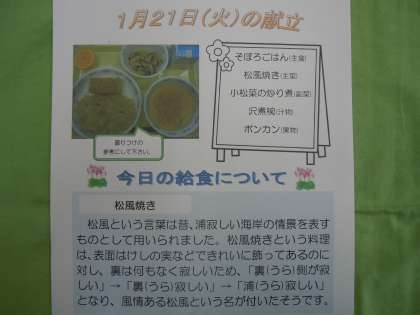 1月21日(火)の献立
そぼろごはん(主食)
松風焼き(主菜)
小松菜の炒り煮(副菜)
沢煮椀(汁物)
ポンカン(果物)
盛りつけの
参考にして下さい。
今日の給食について
松風焼き
松風という言葉は昔、浦寂しい海岸の情景を表す
ものとして用いられました。松風焼きという料理
は、表面はけしの実などできれいに飾ってあるのに
対し、裏は何もなく寂しいため、「裏(うら)側が寂
しい」→「裏(うら)寂しい」→「浦(うら)寂しい」
となり、風情ある松風という名が付いたそうです。